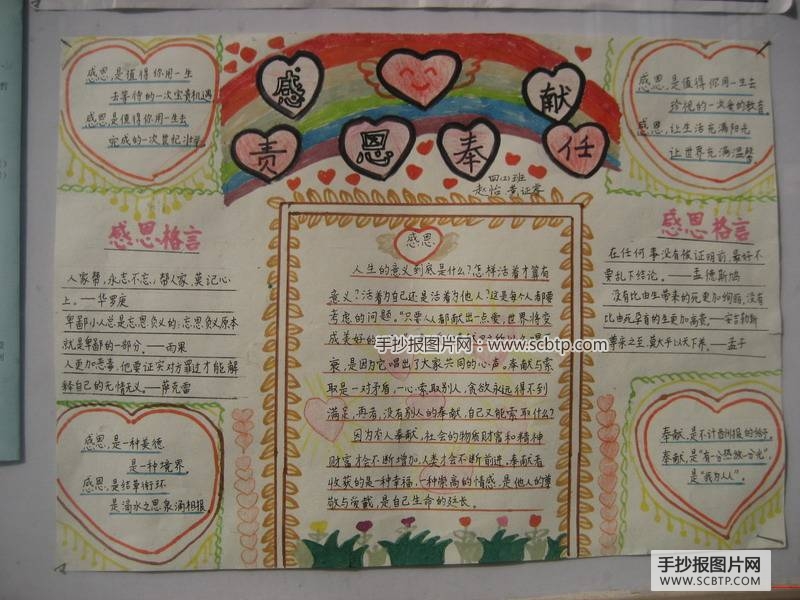 感 献
责 恩 奉 任
四(2)班
赵怡 黄证寒
感恩,是值得你用一生
去等待的一次宝贵机遇
感恩,是值得你用一生去
完成的一次世纪壮举
感恩,是值得你用一生
珍视的一次爱的教育
感恩,让生活充满阳光
让世界充满温馨
感恩格言
人家帮,永志不忘,帮人家,莫记心
上。——华罗庚
卑鄙小人总是忘恩负义的:忘恩负义原本
就是卑鄙的一部分。——雨果
人更加恶毒,他要证实对方罪过才能解
释自己的无情无义。——萨克雷
感恩
人生的意义到底是什么?怎样活着才算有
意义?活着为自己还是活着为他人?这是每个人都要
考虑的问题。“只要人人都献出一点爱,世界将变
成美好的
衰,是因为它唱出了大家共同的心声。奉献与索
取是一对矛盾,一心索取别人,贪欲永远得不到
满足,再者,没有别人的奉献,自己又能索取什么?
因为有人奉献,社会的物质财富和精神
财富才会不断增加,人类才会不断前进。奉献者
收获的是一种幸福,一种崇高的情感,是他人的尊
敬与爱戴,是自己生命的延长。
感恩格言
在任何事没有被证明前,最好不
要乱下结论。——孟德斯鸠
没有比由生带来的死更加绚丽,没有
比由死孕育的生更加高贵。——安吉勒斯
尊亲之至,莫大乎以天下养。——孟子
感恩,是一种美德
是一种境界
感恩,是结草衔环
是滴水之恩泉涌相报
奉献,是不计告酬报的给予。
奉献,是“有一分热放一分光”。
是“我为人人”。
手抄报图片网:www.scbtp.com
手抄报图片网
WWW.SCBTP.COM